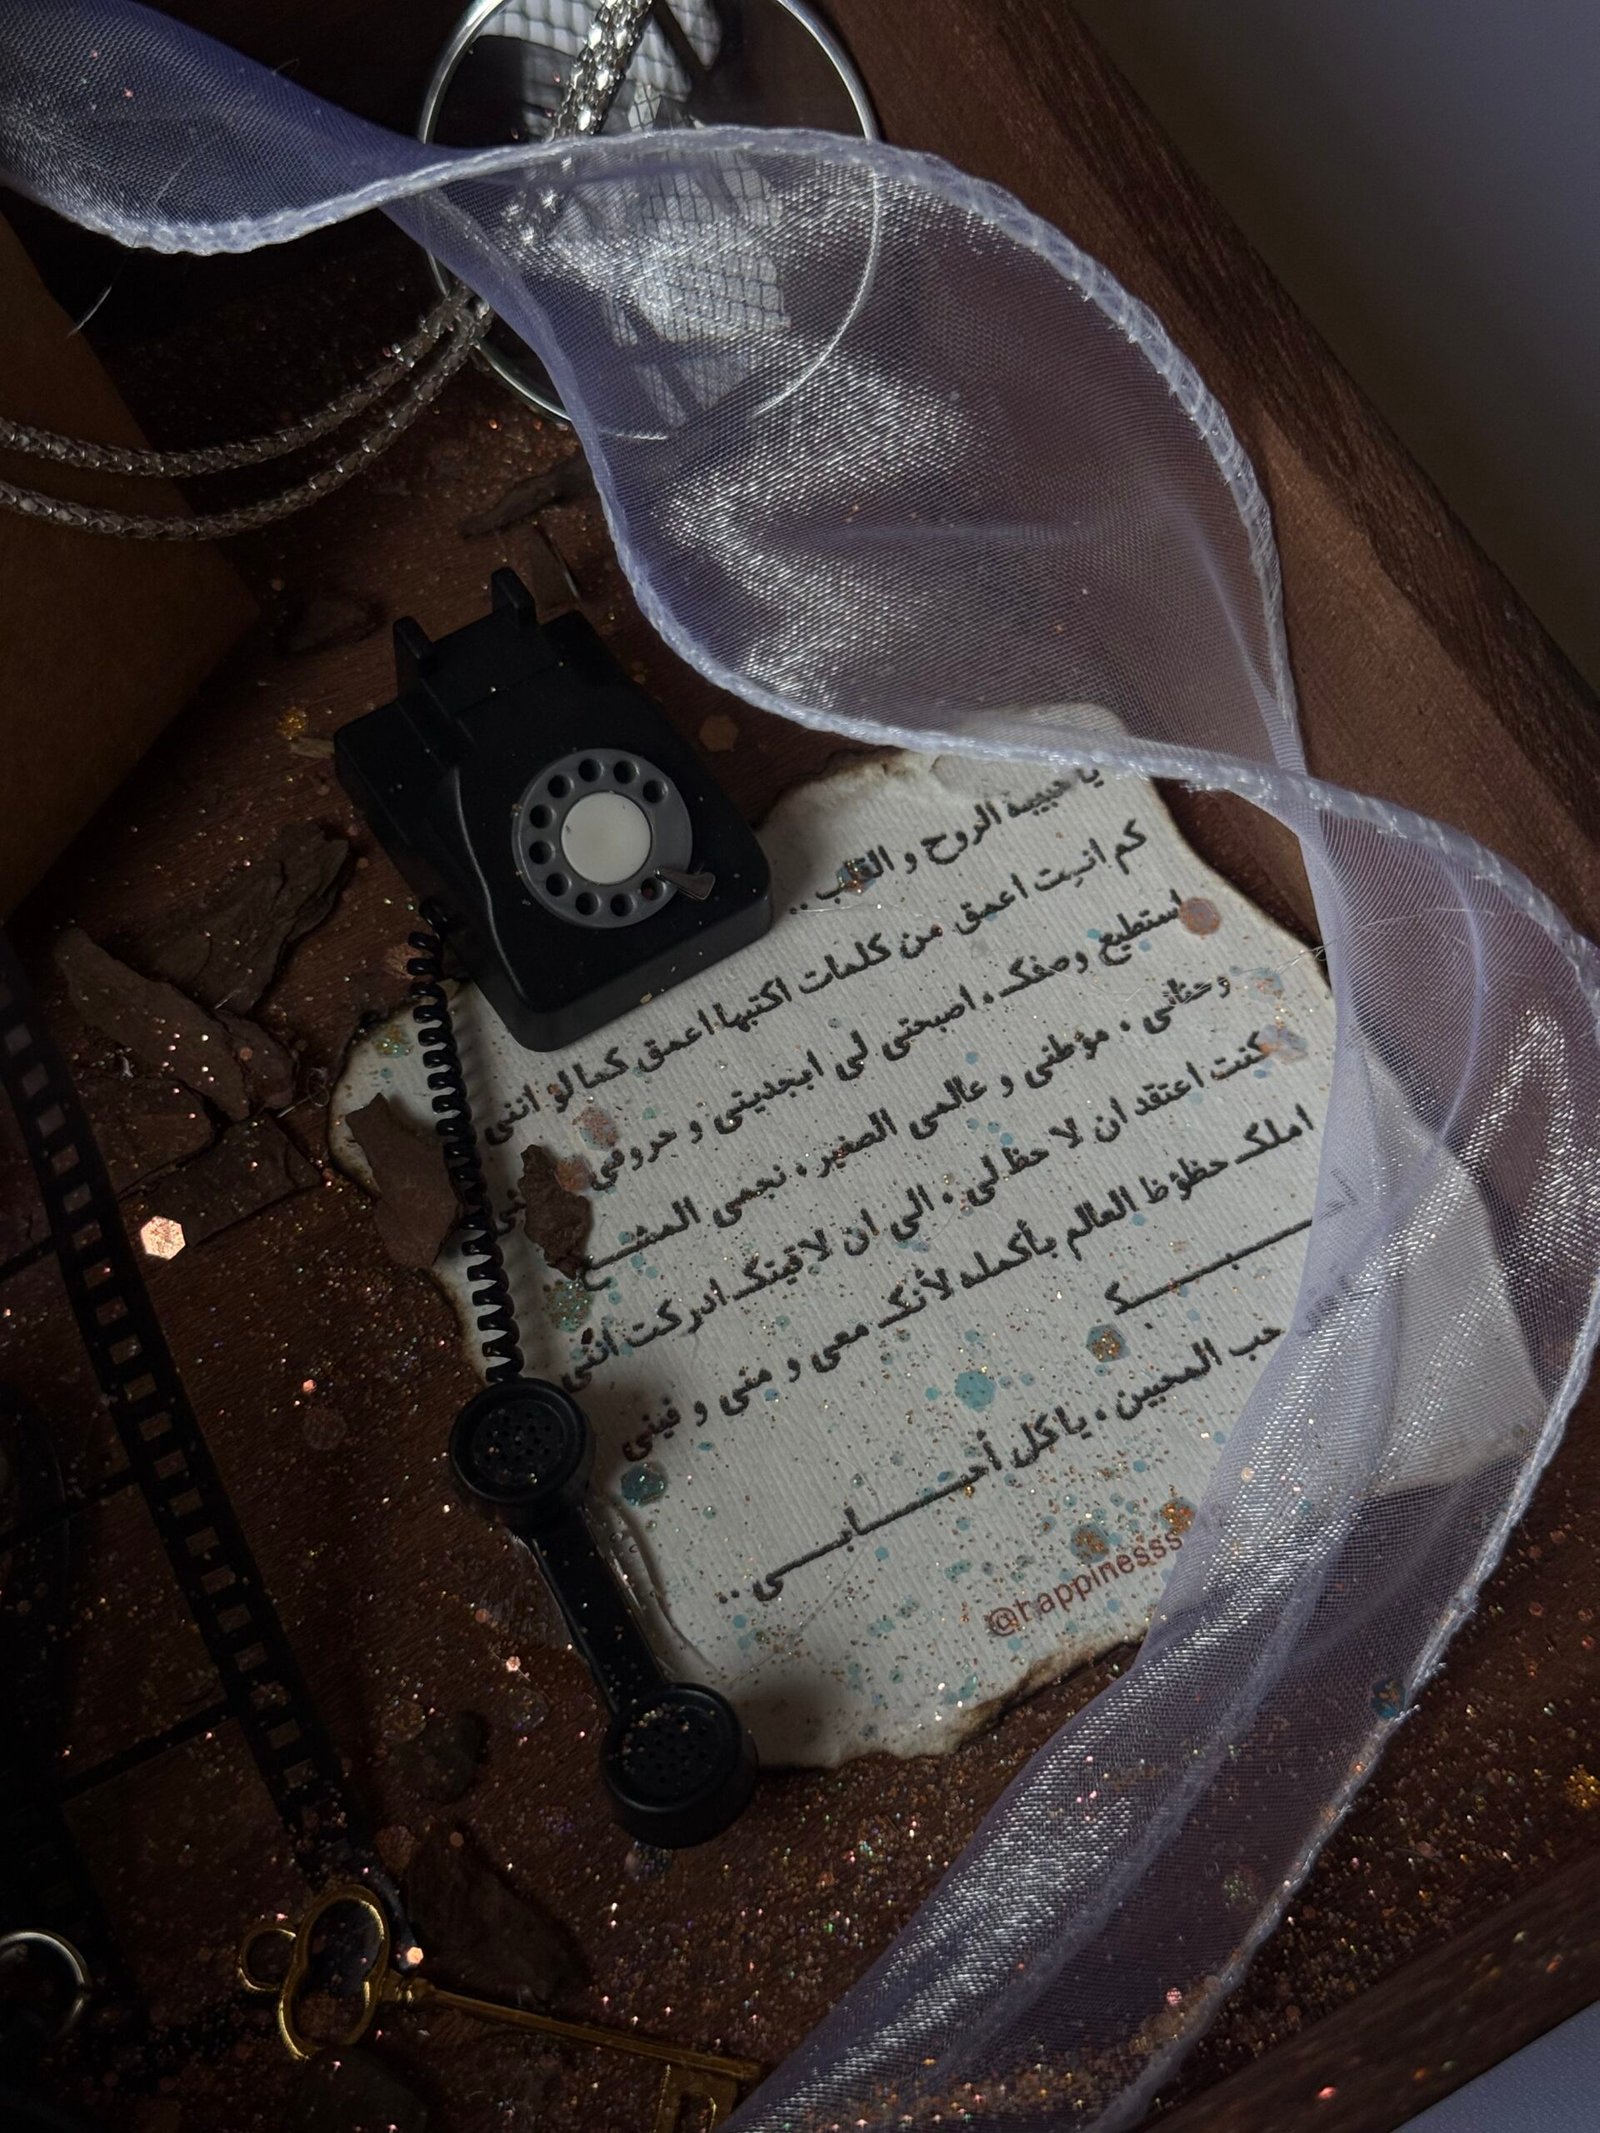 يا حبيبة الروح و القلب ..
كم انيت اعمق من كلمات اكتبها اعمق كما لو انني
استطيع وصفك ، اصبحتي لي ابجديتي و حروفي
وحقائي ، مؤطني و عالمي الصغير ، نجمي المشـــع
كنت اعتقد ان لا حظ لي ، الى ان لاقيتك ادركت انني
املك حظوظ العالم بأكمله لأنك معي و مني و فيني
حب المحبين ، يا كل أحـــــــبابـــــي ..
@happinesss